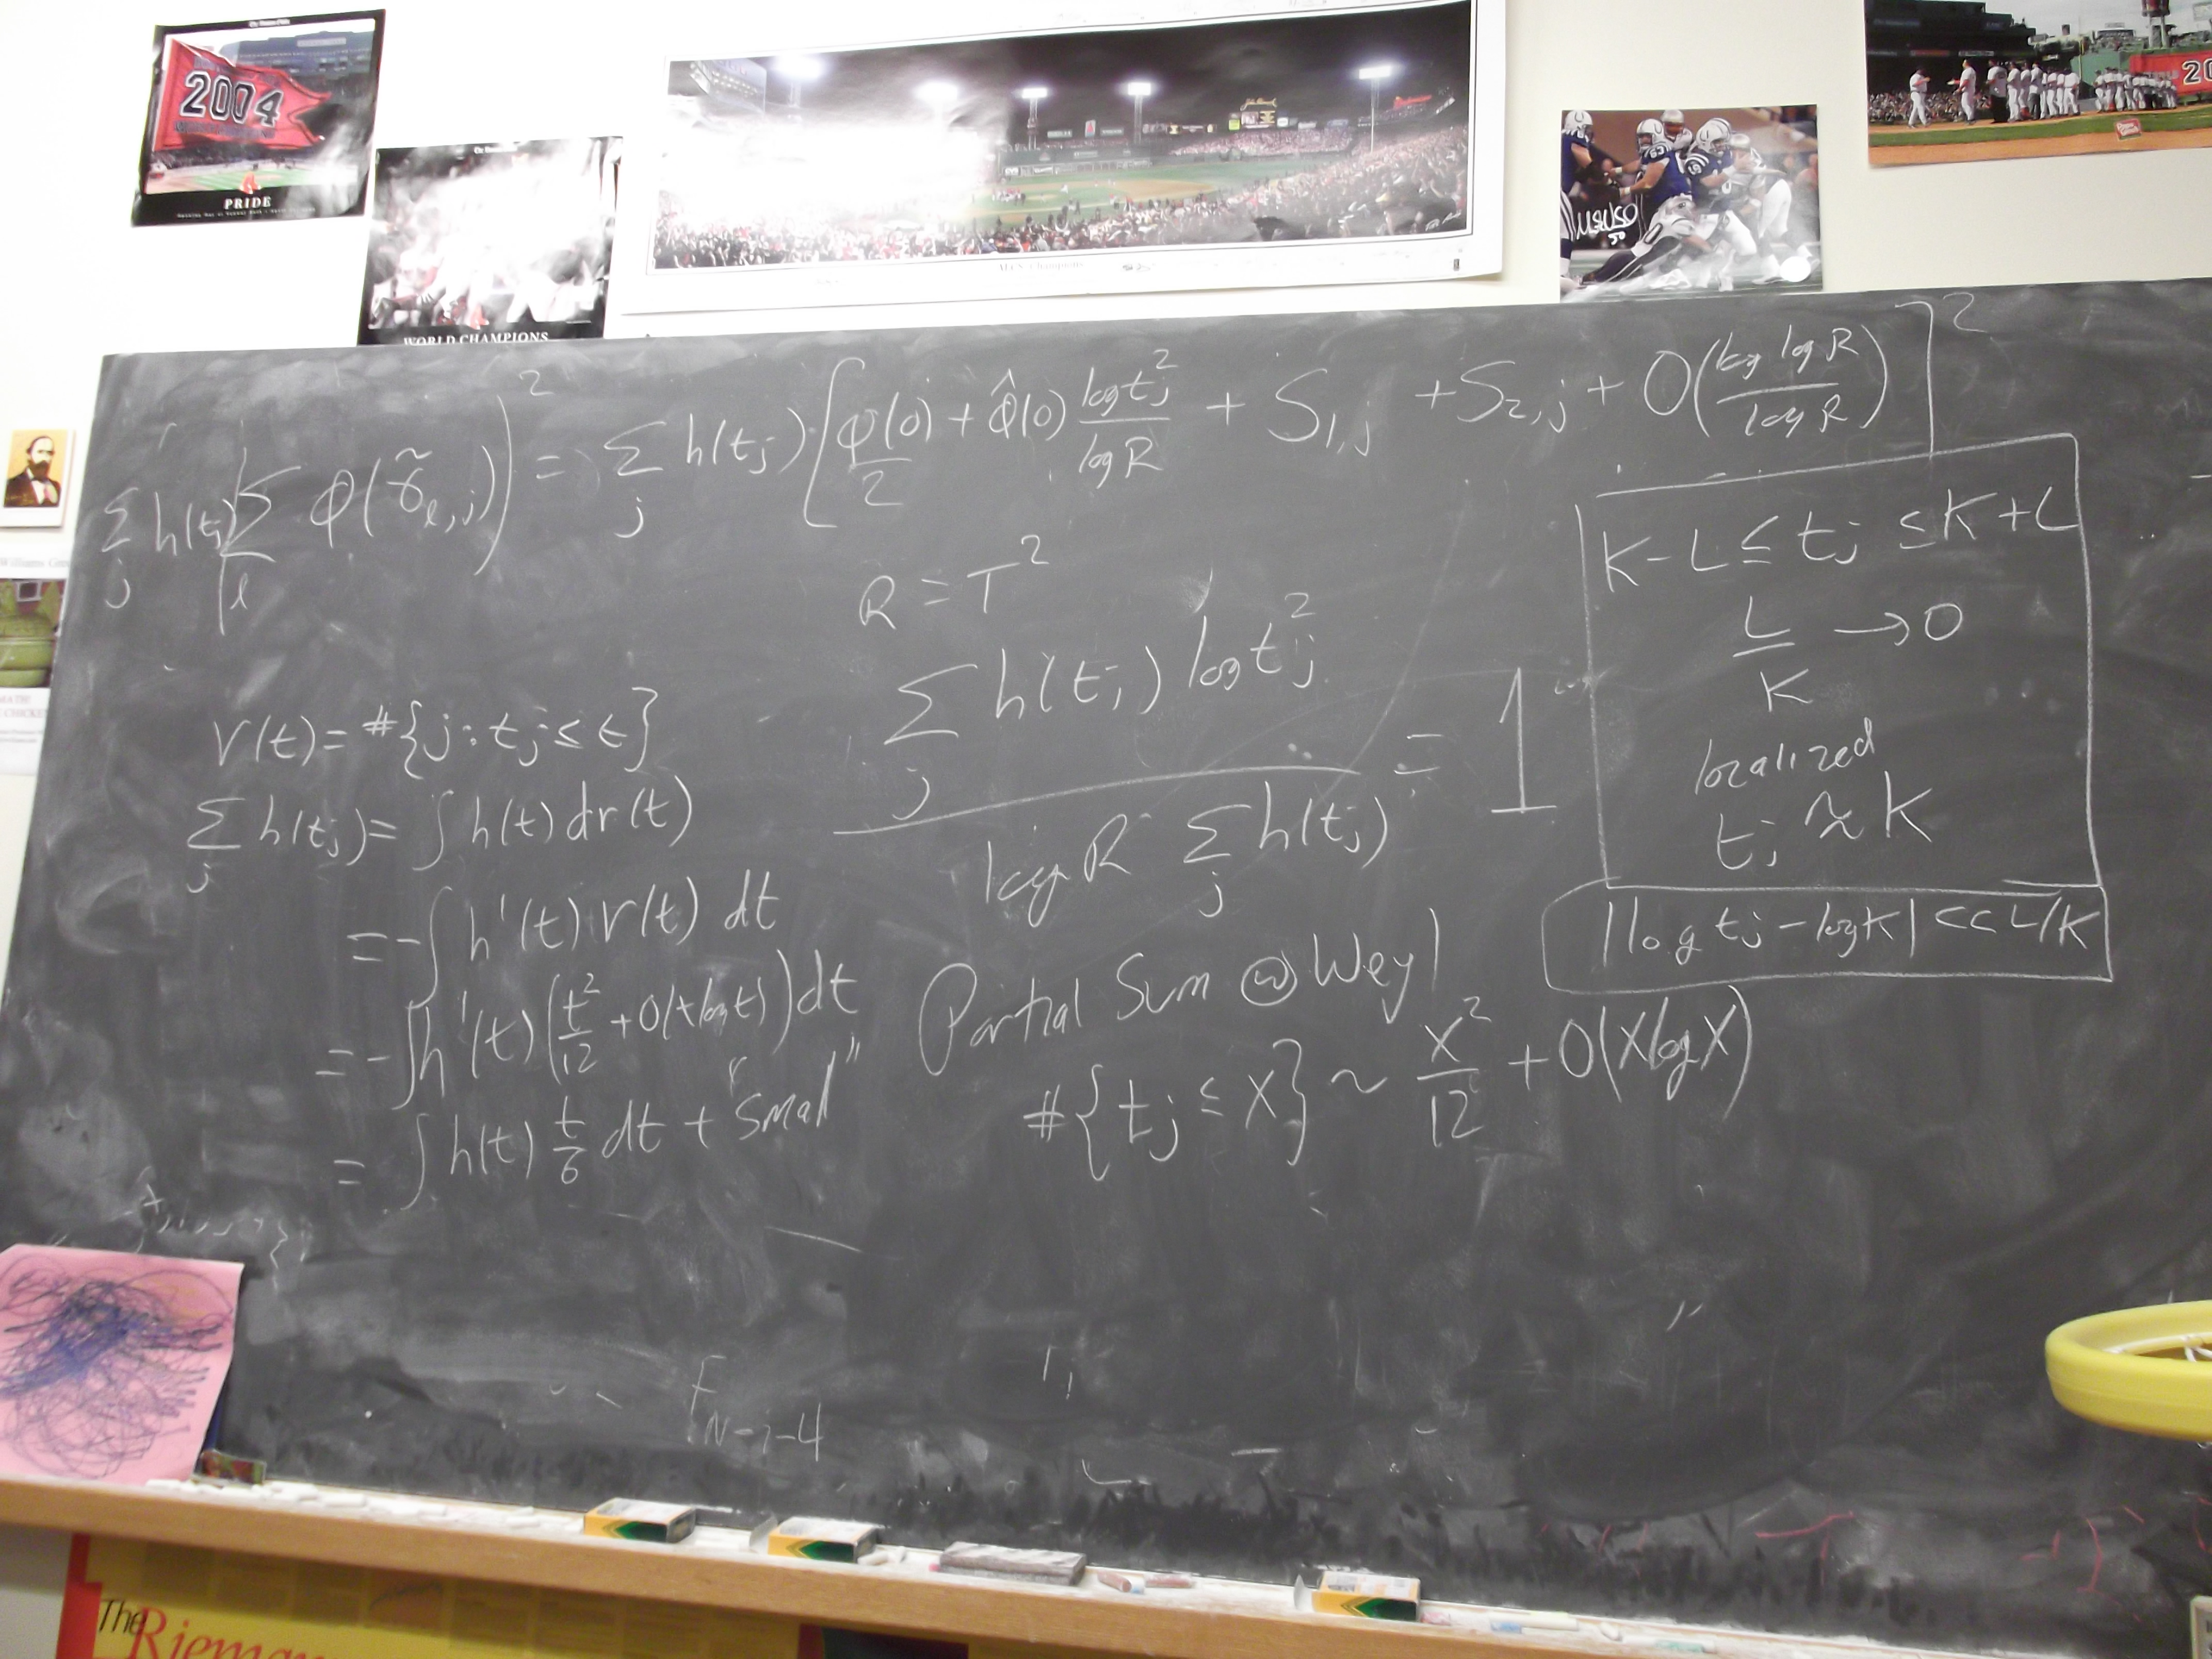 2004
PRIDE
WORLD CHAMPIONS
63
50
20
Σ_j h(t_j) (Σ_l φ(γ̃_{l,j}))^2 = Σ_j h(t_j) [φ(0)/2 + φ̂(0) log t_j^2 / log R + S_{1,j} + S_{2,j} + O(log log R / log R)]^2
R = T^2
Σ_j h(t_j) log t_j^2 / (log R Σ_j h(t_j)) = 1
K-L ≤ t_j ≤ K+L
L/K → 0
localized
t_j ≈ K
|log t_j - log K| << L/K
r(t) = #{j: t_j ≤ t}
Σ_j h(t_j) = ∫ h(t) dr(t)
= -∫ h'(t) r(t) dt
= -∫ h'(t) (t^2/12 + O(t log t)) dt
= ∫ h(t) t/6 dt + "small"
Partial Sum @ Weyl
#{t_j ≤ X} ~ X^2/12 + O(X log X)
F_{N-1-4}
The